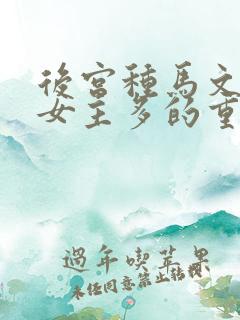 後宮種馬文
女主多的重
過年喫苹果
未任同意禁止转载